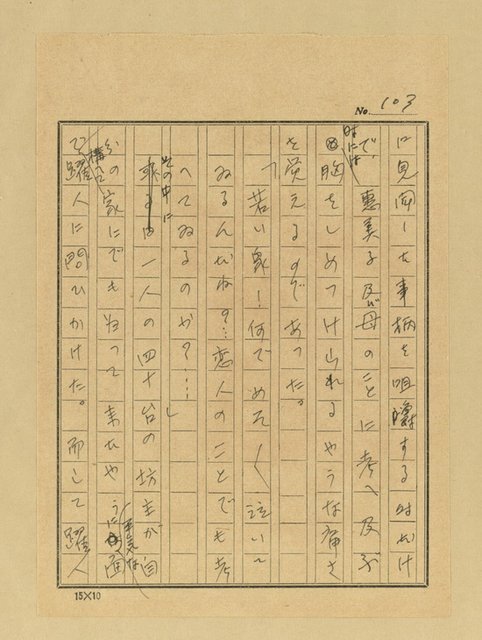 No. 103
に見聞した事柄を咀嚼する時だけ
で、時には恵美子及び母のことに考へ及ぶ
胸をしめつけられるやうな痛さ
を覚えるのであつた。
「若い衆！何でめそ〱泣いて
ゐるんだね？…恋人のことでも考
へてゐるのか？…」
その中に一人の四十台の坊主が自
分の家にでも帰つて来たやうに平気な面
構で躍人に問ひかけた。而して躍人
15×10